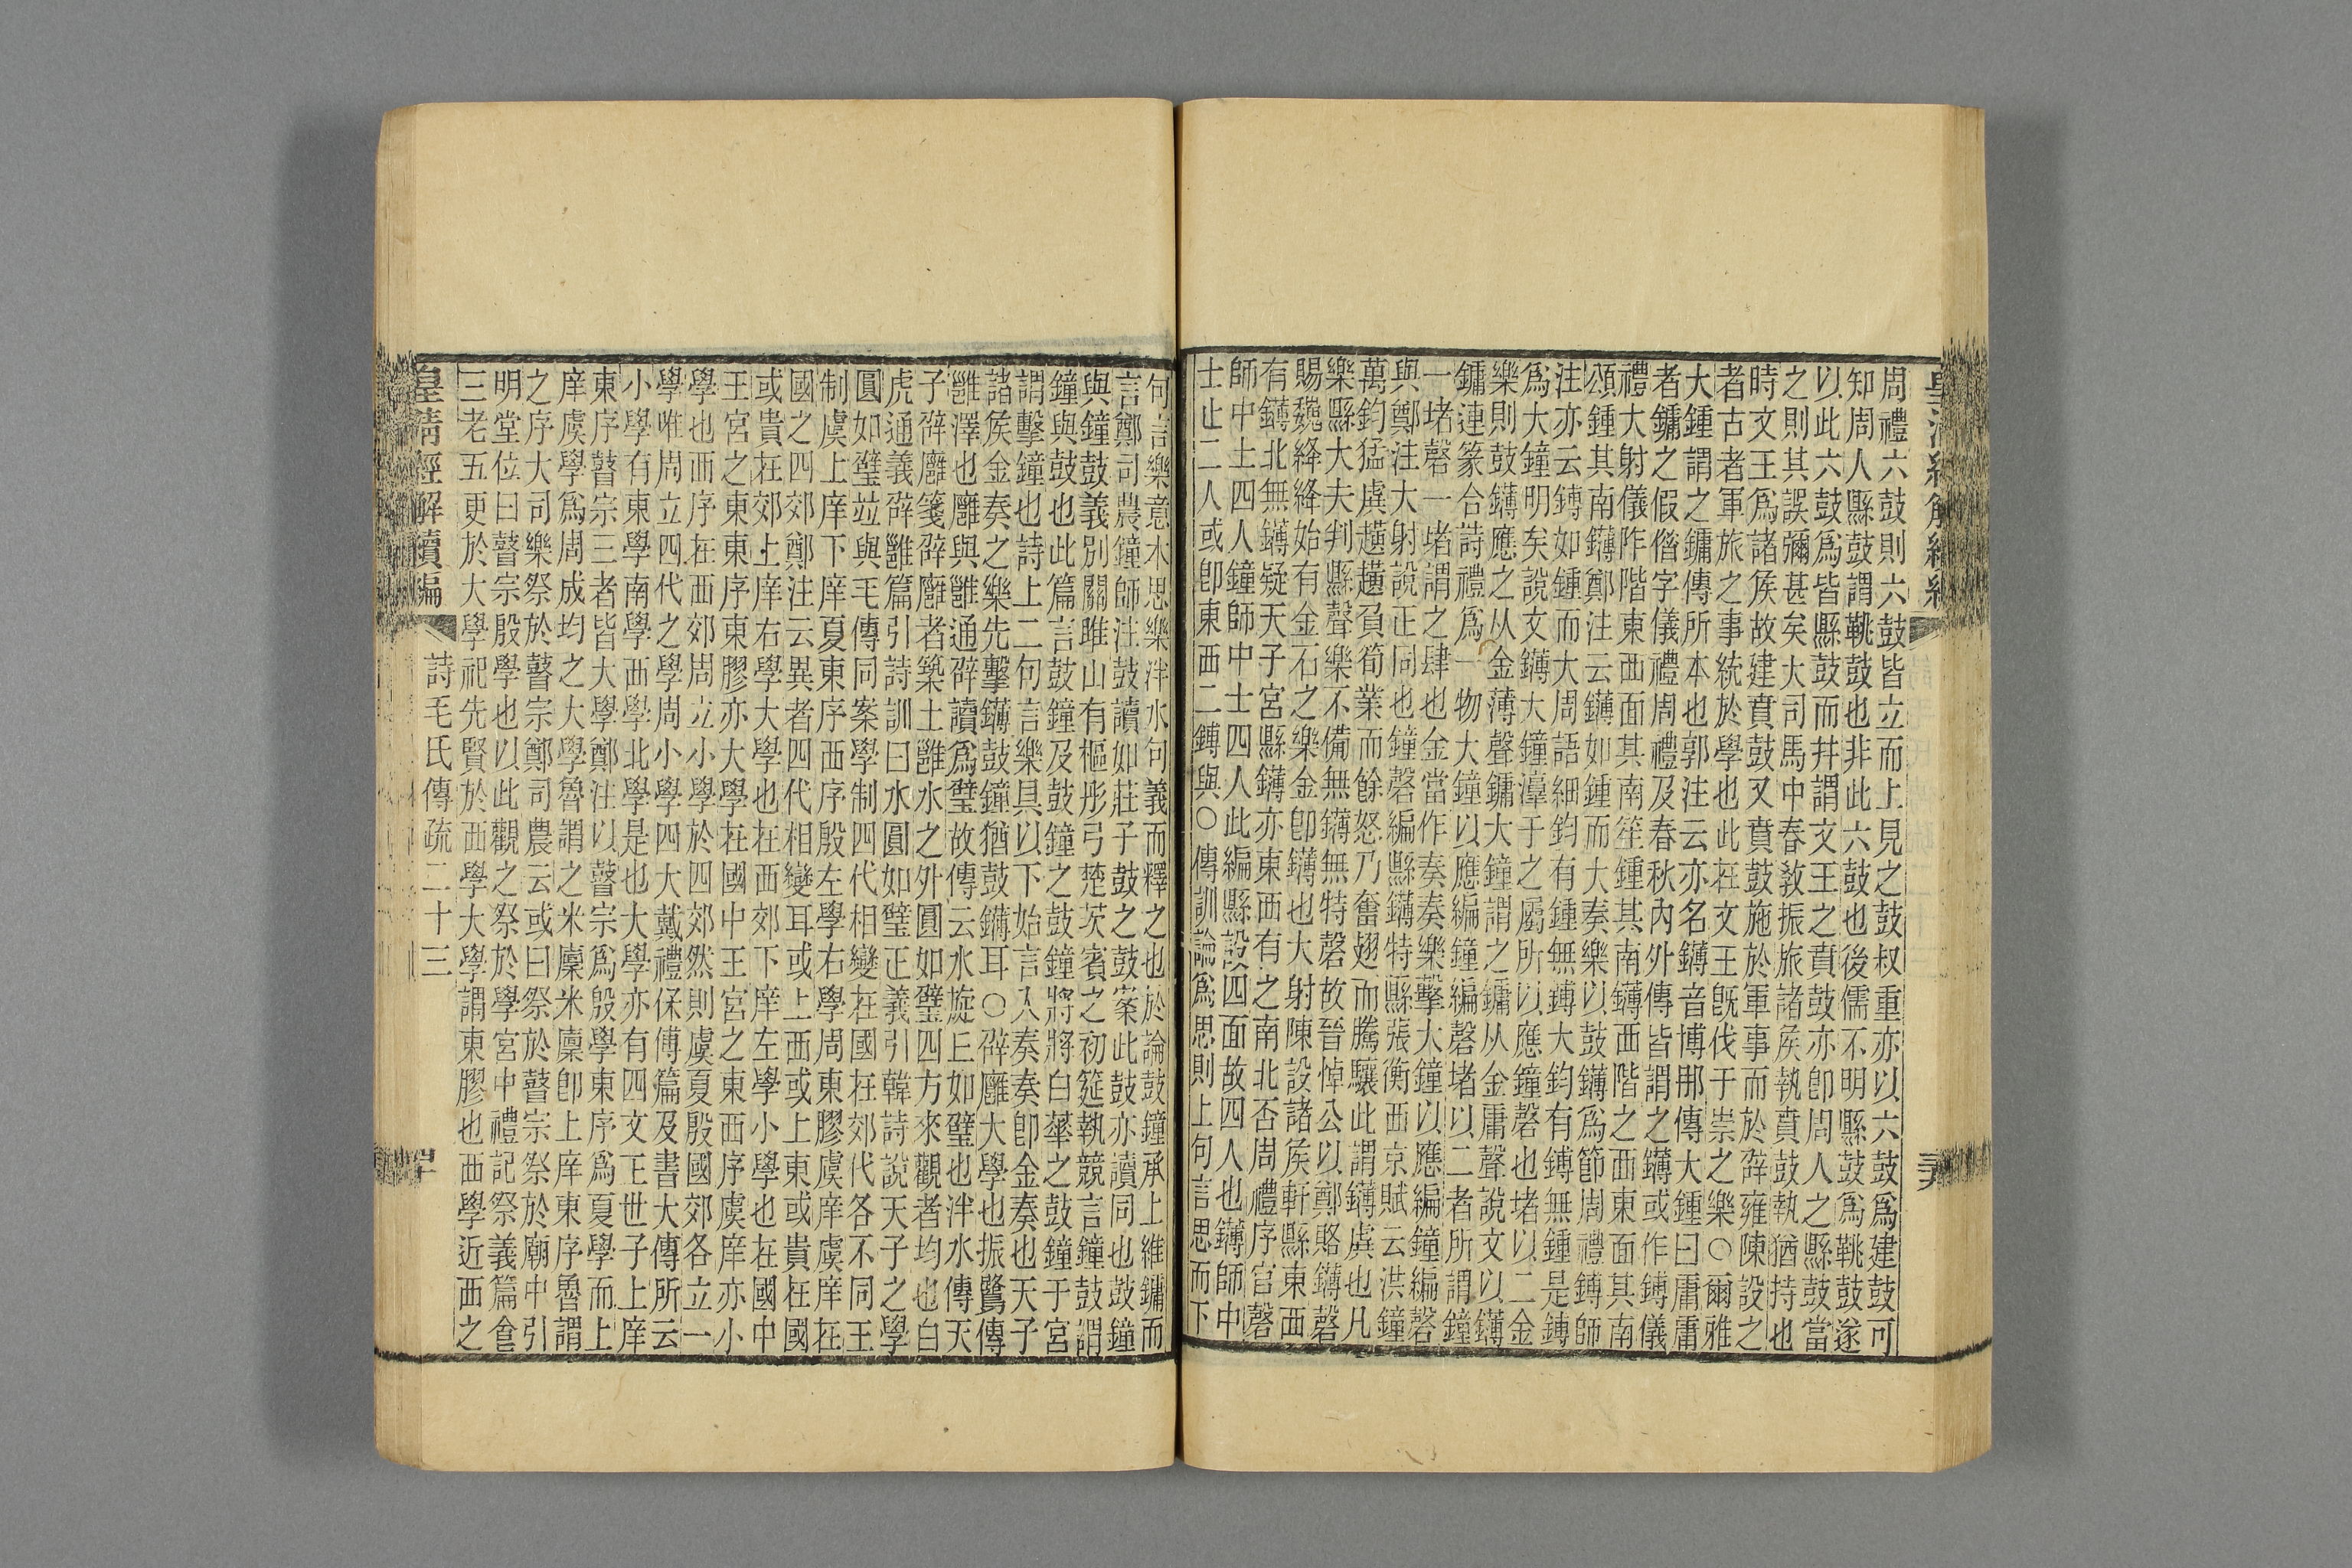 周禮六鼓則六鼓皆立而上見之鼓叔重亦以六鼓爲建鼓可
知周人縣鼓謂鞉鼓也非此六鼓也後儒不明縣鼓爲鞉鼓遂
以此六鼓爲皆縣鼓而幷謂文王之賁鼓亦卽周人之縣鼓當
之則其誤彌甚矣大司馬中春敎振旅諸侯執賁鼓執猶持也
時文王爲諸侯故建賁鼓又賁鼓施於軍事而於辟雍陳設之
者古者軍旅之事統於學也此在文王旣伐于崇之樂○爾雅
大鍾謂之鏞傳所本也郭注云亦名鑮音博那傳大鍾曰庸庸
者鏞之假偕字儀禮周禮及春秋內外傳皆謂之鑮或作鎛儀
禮大射儀阼階東西面其南笙鍾其南鑮西階之西東面其南
頌鍾其南鑮鄭注云鑮如鍾而大奏樂以鼓鑮爲節周禮鎛師
注亦云鎛如鍾而大周語細鈞有鍾無鎛大鈞有鎛無鍾是鎛
爲大鐘明矣說文鑮大鐘淳于之屬所以應鐘磬也堵以二金
樂則鼓鑮應之从金薄聲鏞大鐘謂之鏞从金庸聲說文以鑮
鏞連篆合詩禮爲一物大鐘以應編鐘編磬堵以二者所謂鐘
一堵磬一堵謂之肆也金當作奏奏樂擊大鐘以應編鐘編磬
與鄭注大射說正同也鐘磬編縣鑮特縣張衡西京賦云洪鐘
萬鈞猛虡趪趪負筍業而餘怒乃奮翅而騰驤此謂鑮虡也凡
樂縣大夫判縣聲樂不備無鑮無特磬故晉悼公以鄭賂鑮磬
賜魏絳絳始有金石之樂金卽鑮也大射陳設諸侯軒縣東西
有鑮北無鑮疑天子宮縣鑮亦東西有之南北否周禮序官磬
師中士四人鐘師中士四人此編縣設四面故四人也鑮師中
士止二人或卽東西二鎛與○傳訓論爲思則上句言思而下
句言樂意本思樂泮水句義而釋之也於論鼓鐘承上維鏞而
言鄭司農鐘師注鼓讀如莊子鼓之鼓案此鼓亦讀同也鼓鐘
與鐘鼓義別關雎山有樞彤弓楚茨賓之初筵執競言鐘鼓謂
鐘與鼓也此篇言鼓鐘及鼓鐘之鼓鐘將將白華之鼓鐘于宮
謂擊鐘也詩上二句言樂具以下始言入奏奏卽金奏也天子
諸侯金奏之樂先擊鑮鼓鐘猶鼓鑮耳○辟廱大學也振鷺傳
雝澤也廱與雝通辟讀爲璧故傳云水旋丘如璧也泮水傳天
子辟廱箋辟廱者築土雝水之外圓如璧四方來觀者均也白
虎通義辟雝篇引詩訓曰水圓如璧正義引韓詩說天子之學
圓如璧竝與毛傳同案學制四代相變在國在郊代各不同王
制虞上庠下庠夏東序西序殷左學右學周東膠虞庠虞庠在
國之四郊鄭注云異者四代相變耳或上西或上東或貴在國
或貴在郊上庠右學大學也在西郊下庠左學小學也在國中
王宮之東東序東膠亦大學在國中王宮之東西序虞庠亦小
學也而序在西郊周立小學於四郊然則虞夏殷國郊各立一
學唯周立四代之學周小學四大戴禮保傅篇及書大傳所云
小學有東學南學西學北學是也大學亦有四文王世子上庠
東序瞽宗三者皆大學鄭注以瞽宗爲殷學東序爲夏學而上
庠虞學爲周成均之大學魯謂之米廩米廩卽上庠東序魯謂
之序大司樂祭於瞽宗鄭司農云或曰祭於瞽宗祭於廟中引
明堂位曰瞽宗殷學也以此觀之祭於學宮中禮記祭義篇食
三老五更於大學祀先賢於西學大學謂東膠也西學近西之
皇清經解續編 詩毛氏傳疏二十三